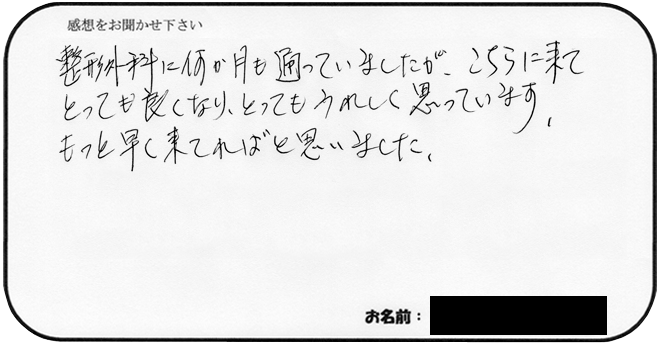 感想をお聞かせ下さい
整形外科に何か月も通っていましたが、こちらに来て
とっても良くなり、とってもうれしく思っています。
もっと早く来てればと思いました。
お名前：